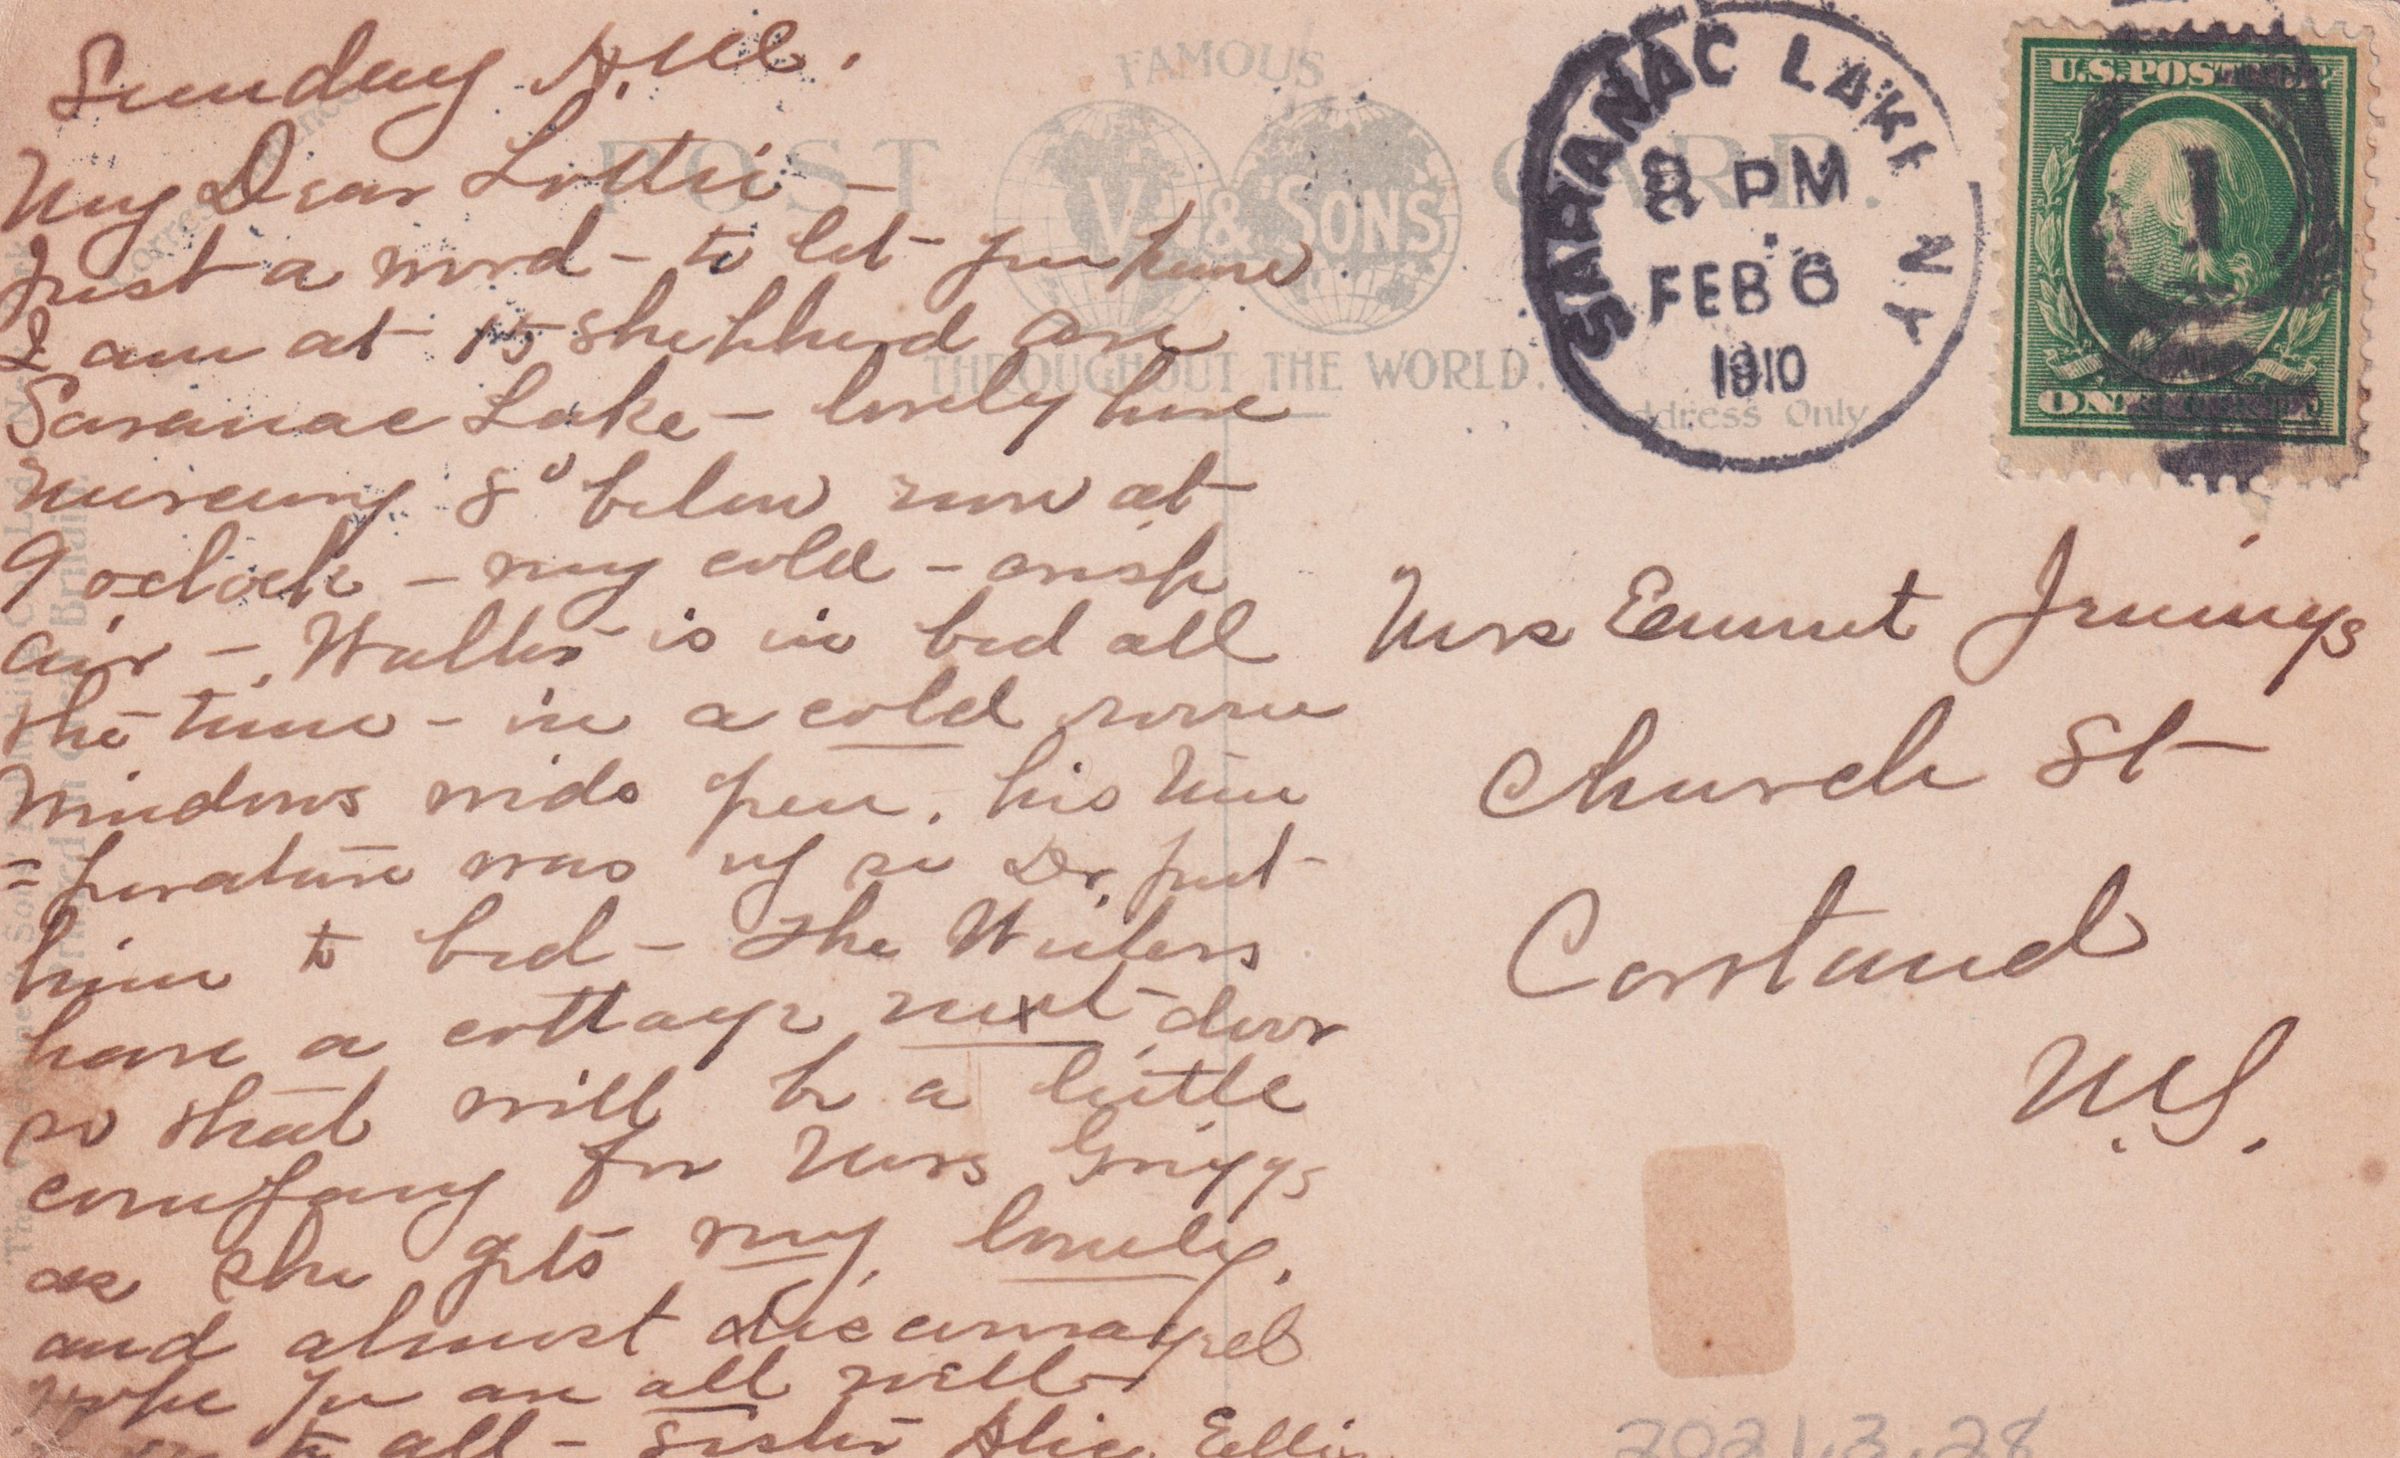 Sunday A.M.
My Dear Lottie -
Just a word - to let you know
I am at 15 Shepherd Ave
Saranac Lake - lovely here
Mercury 8° below now at
9 oclock - very cold - crisp
air - Walter is in bed all
the time - in a cold room
Windows wide open. his tem
=perature was up so Dr. put
him to bed - The
have a cottage next door
so that will be a little
company for Mrs Griggs
as she gets very lonely.
and almost discouraged
hope you are all well
to all - Sister Alice Ellis
FAMOUS
POST CARD.
V. & SONS
THROUGHOUT THE WORLD.
Address Only
SARANAC LAKE N.Y.
8 PM
FEB 6
1910
U.S. POSTAGE
1
ONE
Mrs Emmet Jennings
Church St
Cortland
N.Y.
2021.3.28